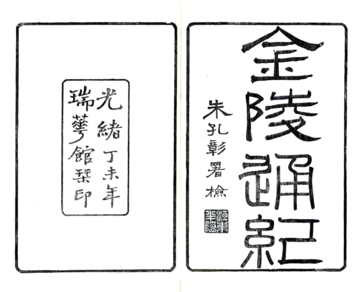 金陵通紀
朱孔彰署檢
光緒丁未年
瑞蕐館琹印